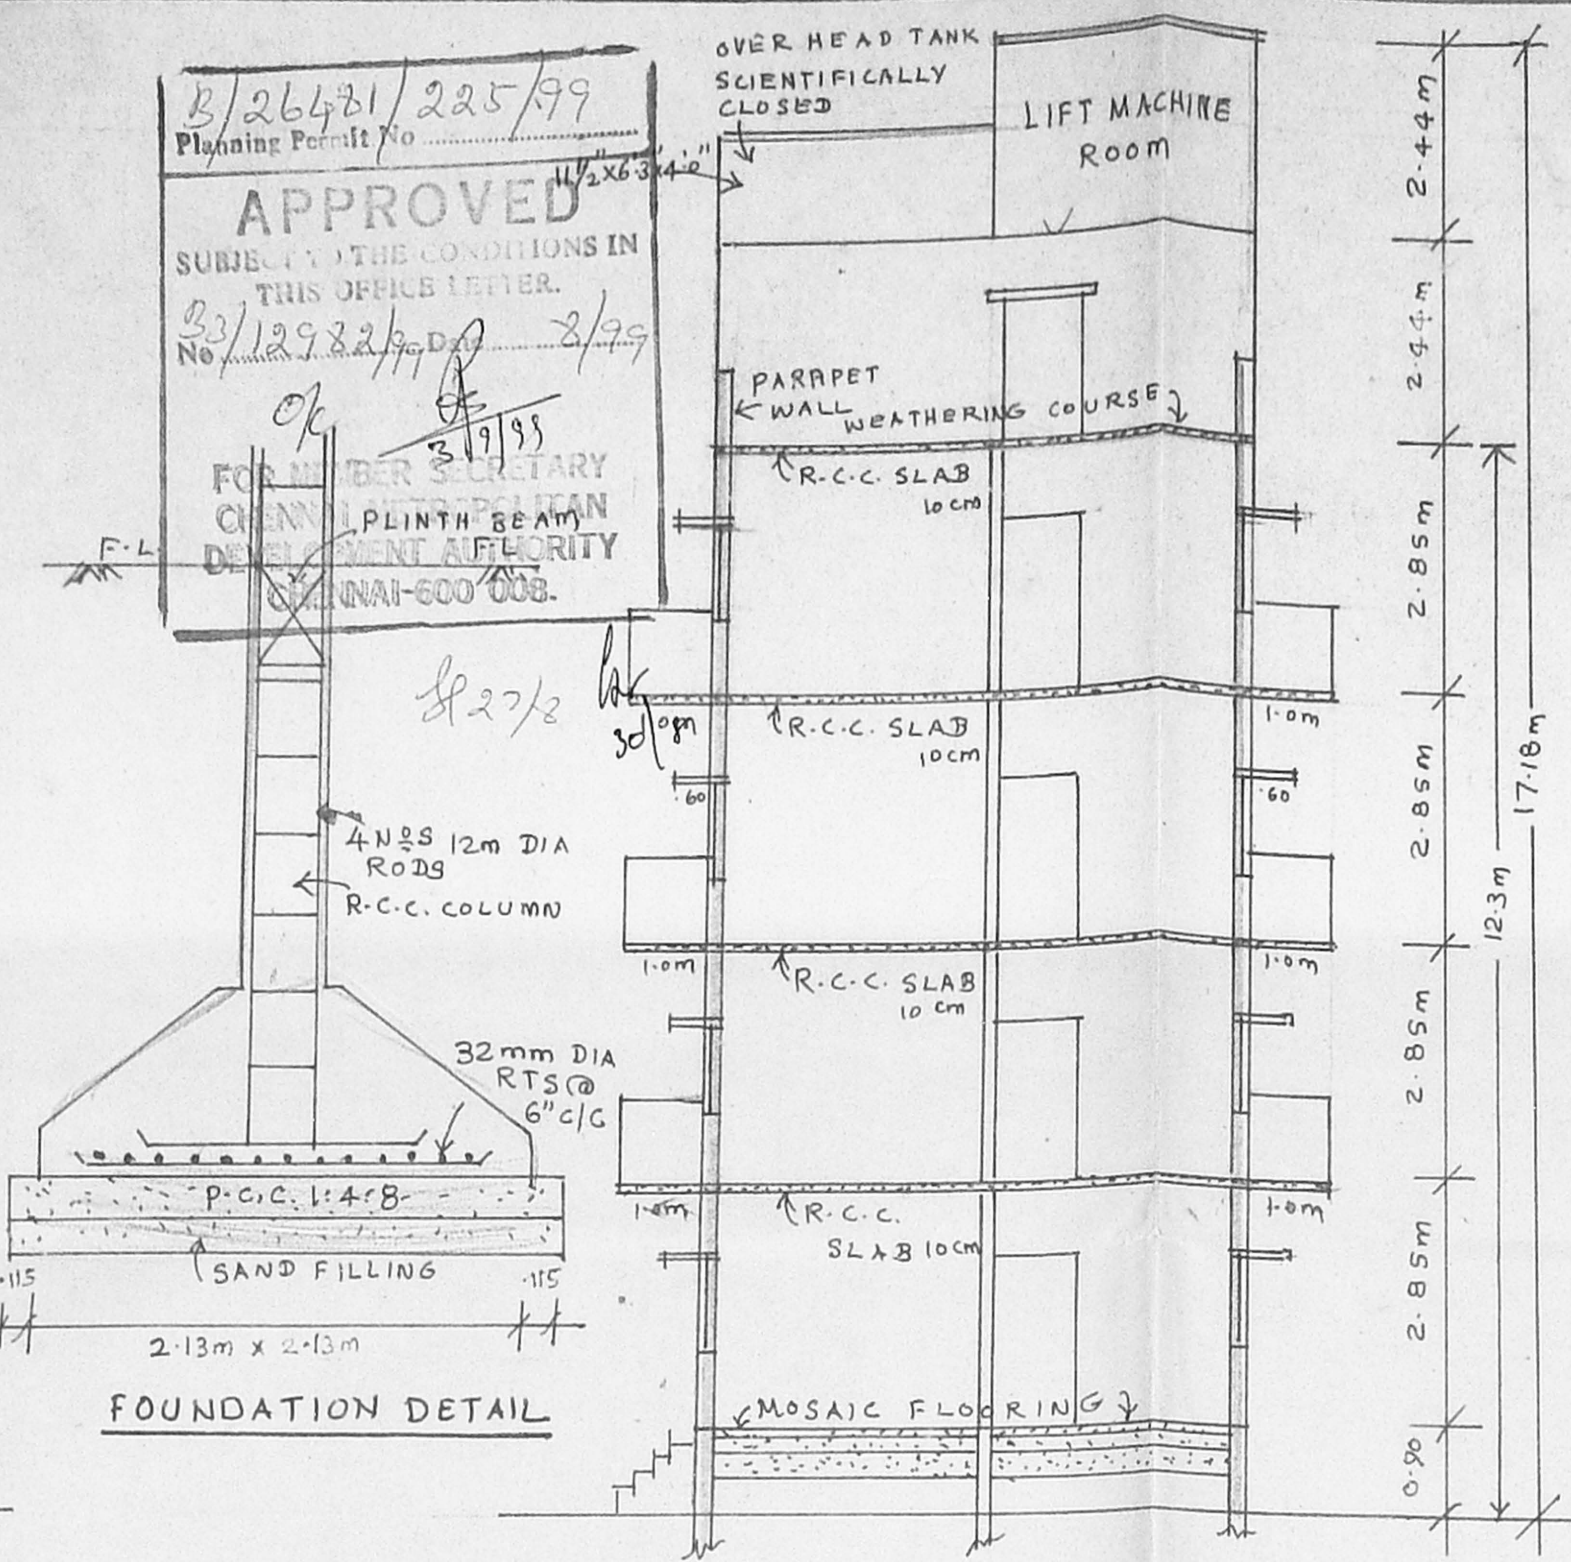 B/26481/225/99
Planning Permit No
APPROVED
SUBJECT TO THE CONDITIONS IN
THIS OFFICE LETTER.
B3/12982/99 Date 8/99
No
O/c
3/9/99
FOR MEMBER SECRETARY
CHENNAI METROPOLITAN
DEVELOPMENT AUTHORITY
CHENNAI-600 008.
PLINTH BEAM
F.L
F.L
27/8
4 NOS 12m DIA
RODS
R.C.C. COLUMN
32mm DIA
RTS @
6" C/C
P.C.C. 1:4:8
SAND FILLING
.115
.115
2.13m x 2.13m
FOUNDATION DETAIL
OVER HEAD TANK
SCIENTIFICALLY
CLOSED
11½"x6'3"x4'0"
LIFT MACHINE
ROOM
PARAPET
WALL
WEATHERING COURSE
R.C.C. SLAB
10cm
R.C.C. SLAB
10cm
1.0m
.60
.60
1.0m
R.C.C. SLAB
10 cm
1.0m
1.0m
R.C.C.
SLAB 10cm
1.0m
MOSAIC FLOORING
2.44m
2.44m
2.85m
2.85m
2.85m
2.85m
0.90
12.3m
17.18m